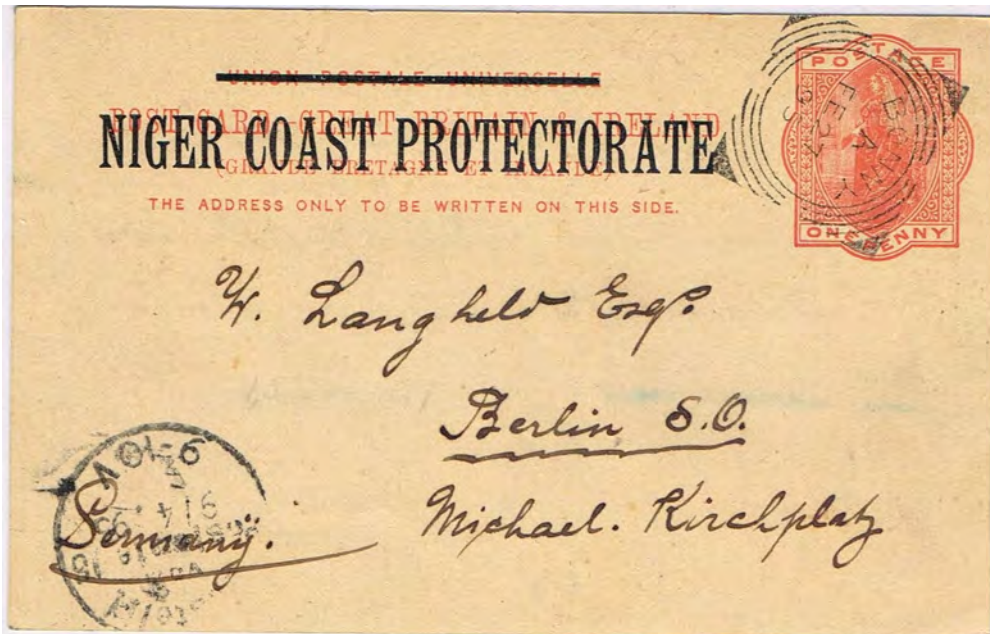 UNION POSTALE UNIVERSELLE
POST CARD - GREAT BRITAIN & IRELAND
NIGER COAST PROTECTORATE
(GRANDE BRETAGNE ET IRLANDE)
THE ADDRESS ONLY TO BE WRITTEN ON THIS SIDE.
POSTAGE
ONE PENNY
BONNY
A
FE 27
W. Langheld Esqr.
Berlin S.O.
Michael. Kirchplatz
Germany.